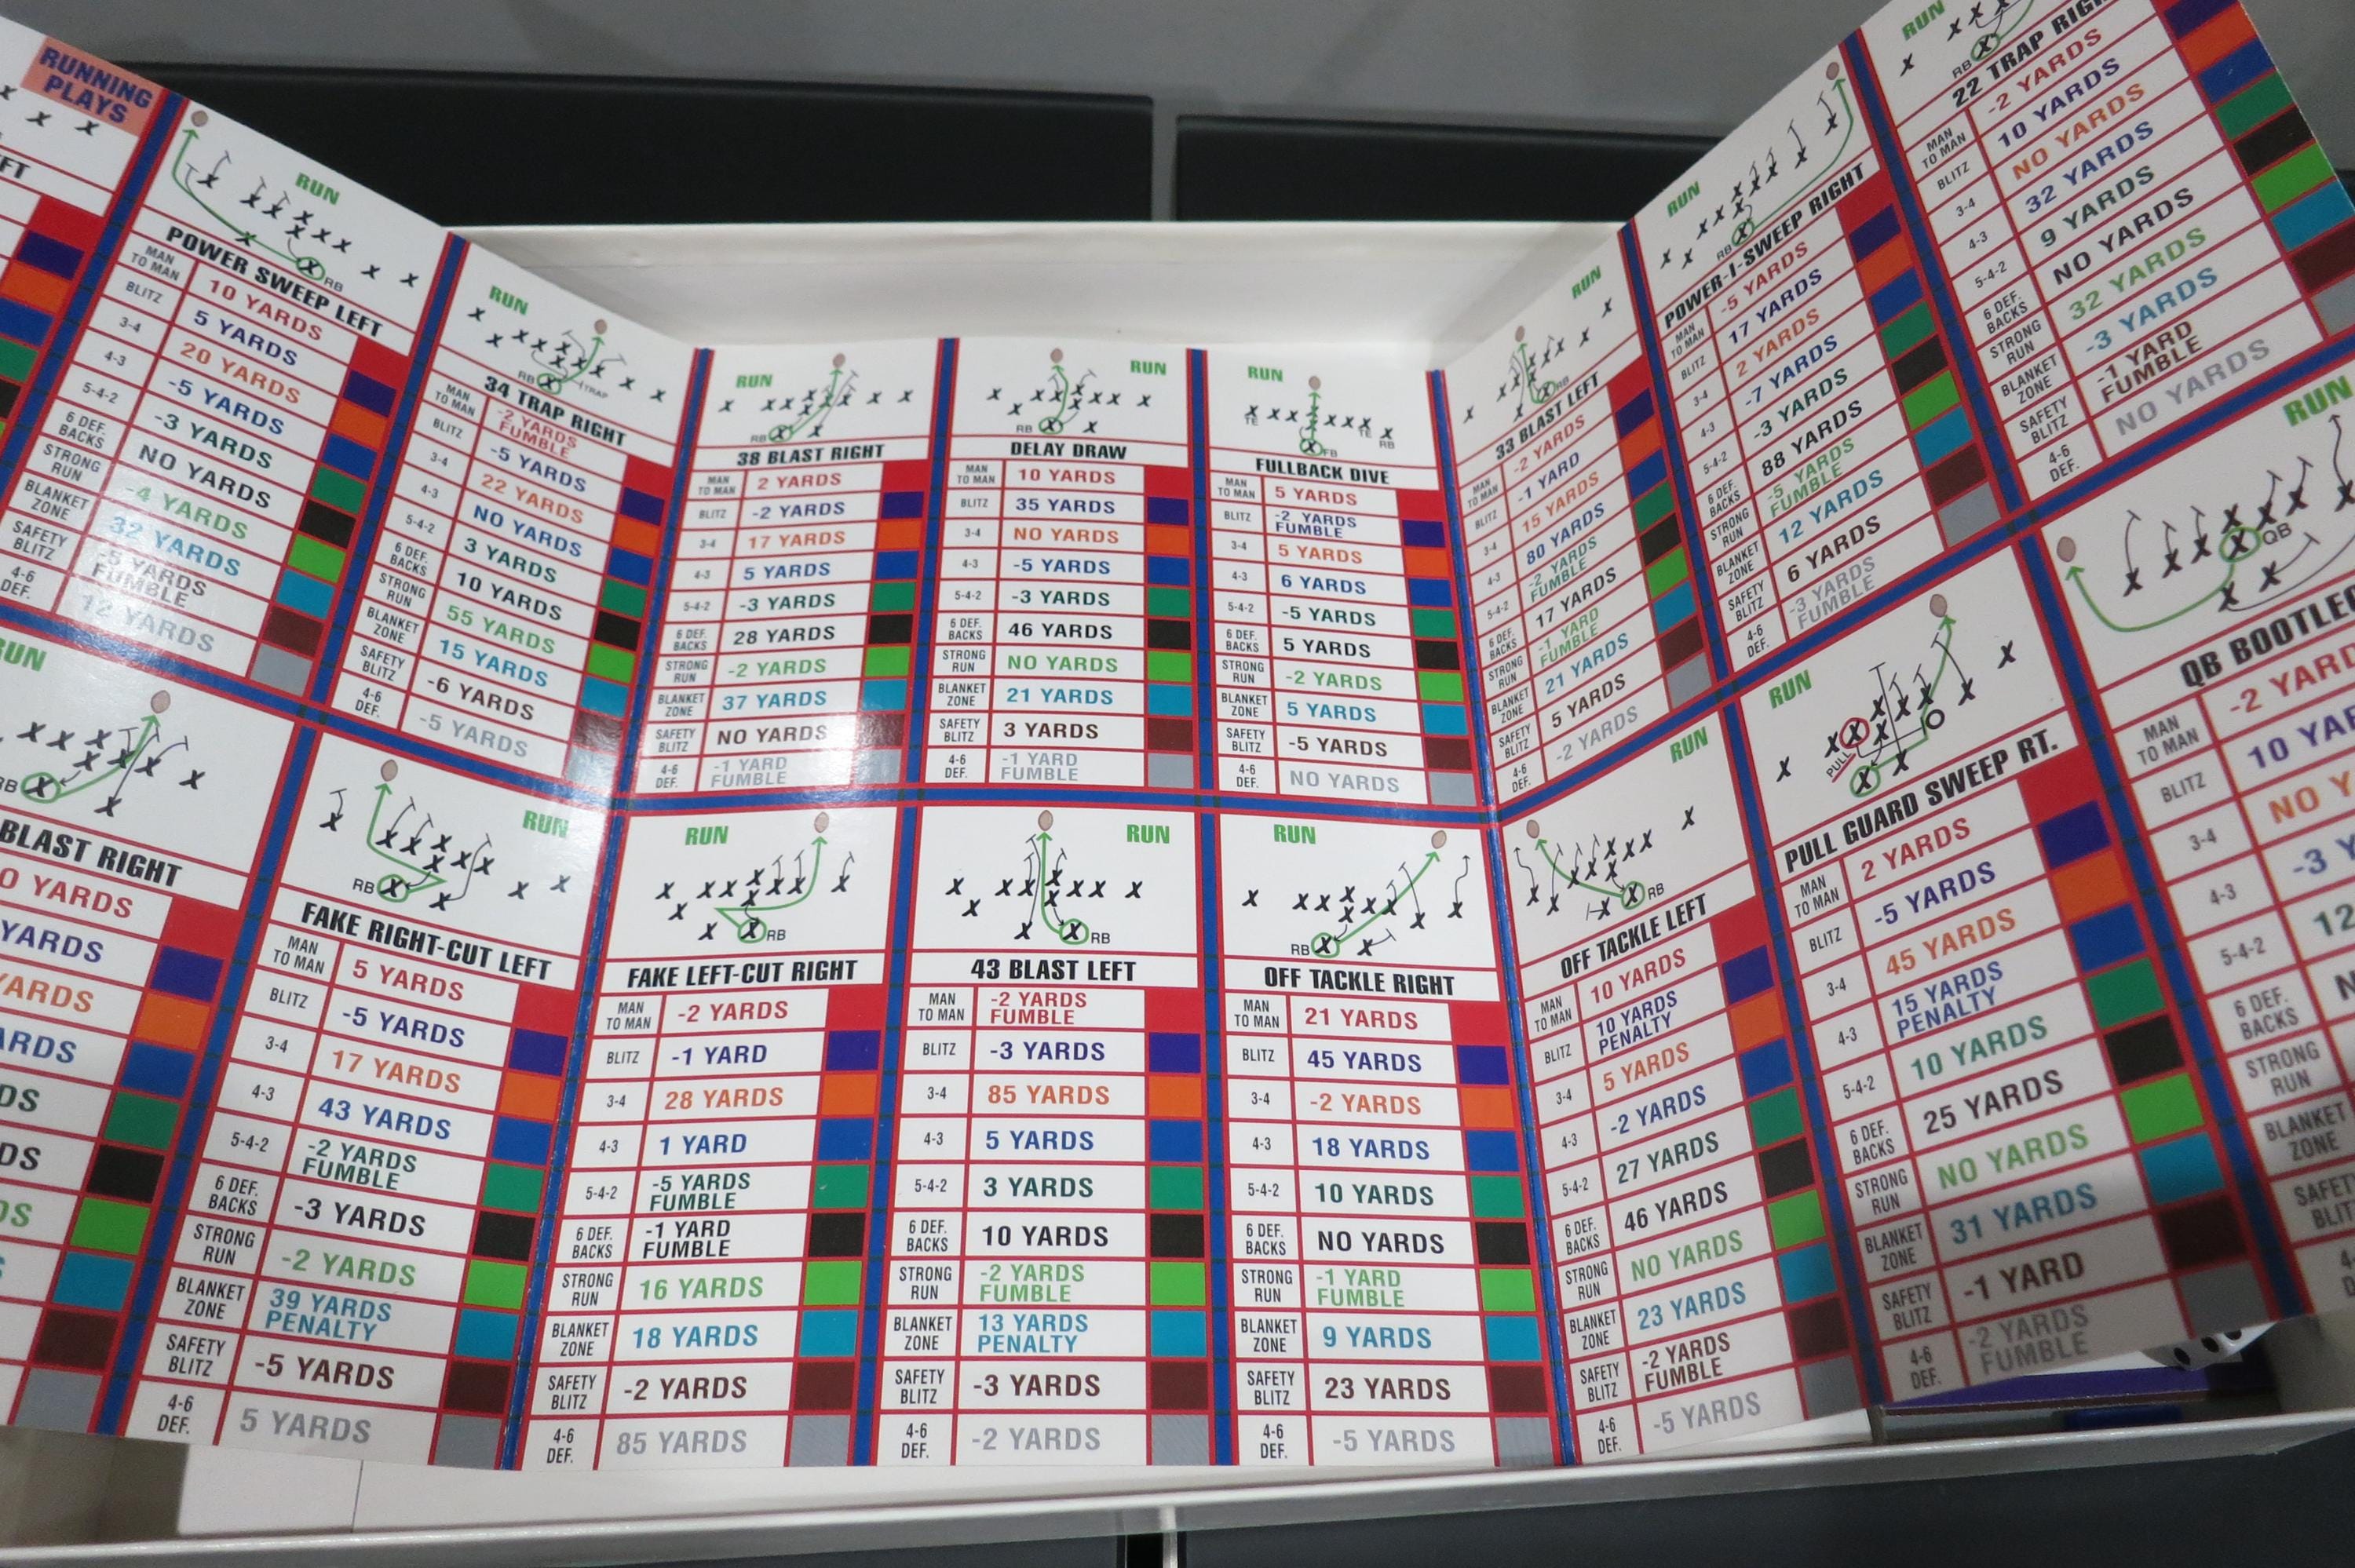 RUNNING
PLAYS
RUN
POWER SWEEP LEFT
MAN TO MAN 10 YARDS
BLITZ 5 YARDS
3-4 20 YARDS
4-3 -5 YARDS
5-4-2 -3 YARDS
6 DEF. BACKS NO YARDS
STRONG RUN -4 YARDS
BLANKET ZONE 32 YARDS
SAFETY BLITZ -5 YARDS FUMBLE
4-6 DEF. 12 YARDS
RB
RUN
RB
TRAP
34 TRAP RIGHT
MAN TO MAN -2 YARDS FUMBLE
BLITZ -5 YARDS
3-4 22 YARDS
4-3 NO YARDS
5-4-2 3 YARDS
6 DEF. BACKS 10 YARDS
STRONG RUN 55 YARDS
BLANKET ZONE 15 YARDS
SAFETY BLITZ -6 YARDS
4-6 DEF. -5 YARDS
RUN
RB
38 BLAST RIGHT
MAN TO MAN 2 YARDS
BLITZ -2 YARDS
3-4 17 YARDS
4-3 5 YARDS
5-4-2 -3 YARDS
6 DEF. BACKS 28 YARDS
STRONG RUN -2 YARDS
BLANKET ZONE 37 YARDS
SAFETY BLITZ NO YARDS
4-6 DEF. -1 YARD FUMBLE
RUN
RB
DELAY DRAW
MAN TO MAN 10 YARDS
BLITZ 35 YARDS
3-4 NO YARDS
4-3 -5 YARDS
5-4-2 -3 YARDS
6 DEF. BACKS 46 YARDS
STRONG RUN NO YARDS
BLANKET ZONE 21 YARDS
SAFETY BLITZ 3 YARDS
4-6 DEF. -1 YARD FUMBLE
RUN
TE TE RB
FB
FULLBACK DIVE
MAN TO MAN 5 YARDS
BLITZ -2 YARDS FUMBLE
3-4 5 YARDS
4-3 6 YARDS
5-4-2 -5 YARDS
6 DEF. BACKS 5 YARDS
STRONG RUN -2 YARDS
BLANKET ZONE 5 YARDS
SAFETY BLITZ -5 YARDS
4-6 DEF. NO YARDS
RUN
RB
33 BLAST LEFT
MAN TO MAN -2 YARDS
BLITZ -1 YARD
3-4 15 YARDS
4-3 80 YARDS
5-4-2 -2 YARDS FUMBLE
6 DEF. BACKS 17 YARDS
STRONG RUN -1 YARD FUMBLE
BLANKET ZONE 21 YARDS
SAFETY BLITZ 5 YARDS
4-6 DEF. -2 YARDS
RUN
RB
POWER-I-SWEEP RIGHT
MAN TO MAN -5 YARDS
BLITZ 17 YARDS
3-4 2 YARDS
4-3 -7 YARDS
5-4-2 -3 YARDS
6 DEF. BACKS 88 YARDS
STRONG RUN -5 YARDS FUMBLE
BLANKET ZONE 12 YARDS
SAFETY BLITZ 6 YARDS
4-6 DEF. -3 YARDS FUMBLE
RUN
RB
22 TRAP RIGH
MAN TO MAN -2 YARDS
BLITZ 10 YARDS
3-4 NO YARDS
4-3 32 YARDS
5-4-2 9 YARDS
6 DEF. BACKS NO YARDS
STRONG RUN 32 YARDS
BLANKET ZONE -3 YARDS
SAFETY BLITZ -1 YARD FUMBLE
4-6 DEF. NO YARDS
RUN
RB
BLAST RIGHT
0 YARDS
YARDS
YARDS
ARDS
DS
DS
DS
RUN
RB
FAKE RIGHT-CUT LEFT
MAN TO MAN 5 YARDS
BLITZ -5 YARDS
3-4 17 YARDS
4-3 43 YARDS
5-4-2 -2 YARDS FUMBLE
6 DEF. BACKS -3 YARDS
STRONG RUN -2 YARDS
BLANKET ZONE 39 YARDS PENALTY
SAFETY BLITZ -5 YARDS
4-6 DEF. 5 YARDS
RUN
RB
FAKE LEFT-CUT RIGHT
MAN TO MAN -2 YARDS
BLITZ -1 YARD
3-4 28 YARDS
4-3 1 YARD
5-4-2 -5 YARDS FUMBLE
6 DEF. BACKS -1 YARD FUMBLE
STRONG RUN 16 YARDS
BLANKET ZONE 18 YARDS
SAFETY BLITZ -2 YARDS
4-6 DEF. 85 YARDS
RUN
RB
43 BLAST LEFT
MAN TO MAN -2 YARDS FUMBLE
BLITZ -3 YARDS
3-4 85 YARDS
4-3 5 YARDS
5-4-2 3 YARDS
6 DEF. BACKS 10 YARDS
STRONG RUN -2 YARDS FUMBLE
BLANKET ZONE 13 YARDS PENALTY
SAFETY BLITZ -3 YARDS
4-6 DEF. -2 YARDS
RUN
RB
OFF TACKLE RIGHT
MAN TO MAN 21 YARDS
BLITZ 45 YARDS
3-4 -2 YARDS
4-3 18 YARDS
5-4-2 10 YARDS
6 DEF. BACKS NO YARDS
STRONG RUN -1 YARD FUMBLE
BLANKET ZONE 9 YARDS
SAFETY BLITZ 23 YARDS
4-6 DEF. -5 YARDS
RUN
RB
OFF TACKLE LEFT
MAN TO MAN 10 YARDS
BLITZ 10 YARDS PENALTY
3-4 5 YARDS
4-3 -2 YARDS
5-4-2 27 YARDS
6 DEF. BACKS 46 YARDS
STRONG RUN NO YARDS
BLANKET ZONE 23 YARDS
SAFETY BLITZ -2 YARDS FUMBLE
4-6 DEF. -5 YARDS
RUN
PULL
PULL GUARD SWEEP RT.
MAN TO MAN 2 YARDS
BLITZ -5 YARDS
3-4 45 YARDS
4-3 15 YARDS PENALTY
5-4-2 10 YARDS
6 DEF. BACKS 25 YARDS
STRONG RUN NO YARDS
BLANKET ZONE 31 YARDS
SAFETY BLITZ -1 YARD
4-6 DEF. -2 YARDS FUMBLE
RUN
QB
QB BOOTLEG
MAN TO MAN -2 YARD
BLITZ 10 YAR
3-4 NO Y
4-3 -3 Y
5-4-2 12
6 DEF. BACKS N
STRONG RUN
BLANKET ZONE
SAFETY BLITZ